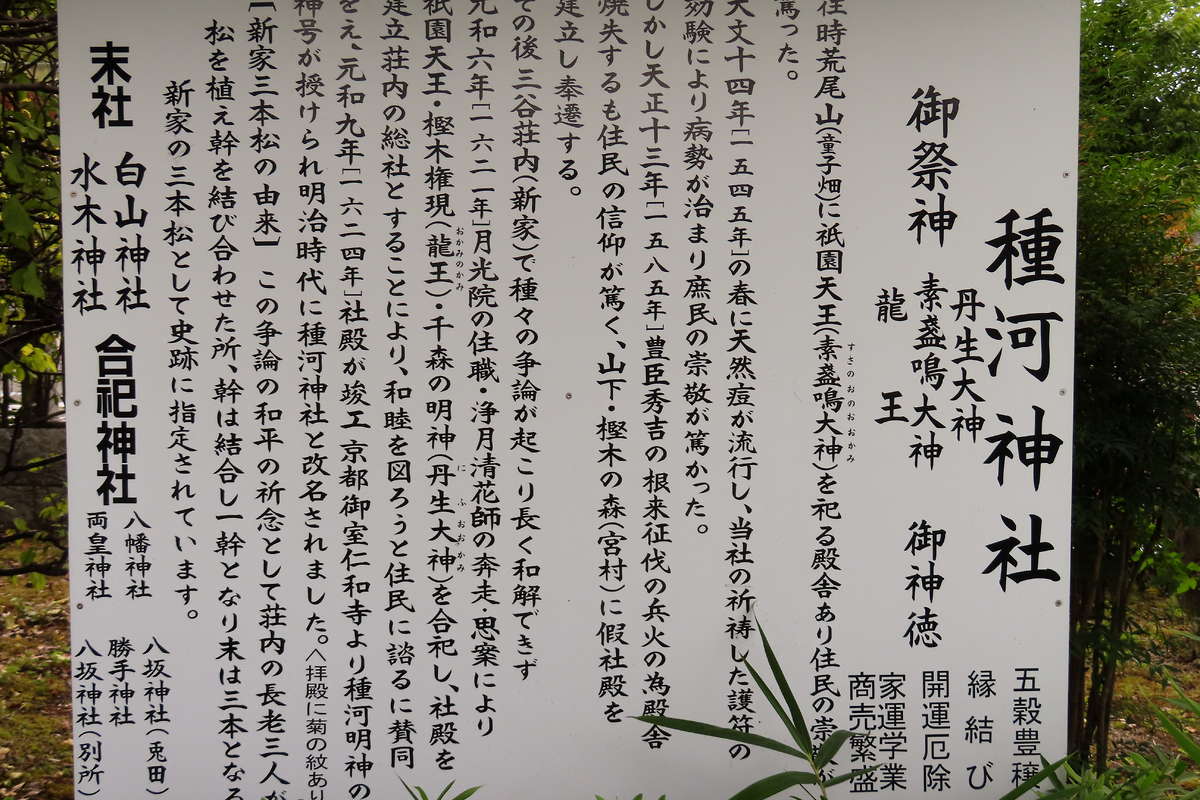 種河神社
御祭神
丹生大神
素盞嗚大神
龍王
御神徳
五穀豊穣
縁結び
開運厄除
家運学業
商売繁盛
往時荒尾山(童子畑)に祇園天王(素盞嗚大神)を祀る殿舎あり住民の崇敬が
すさのおのおおかみ
篤った。
天文十四年[一五四五年]の春に天然痘が流行し、当社の祈祷した護符の
効験により病勢が治まり庶民の崇敬が篤かった。
しかし天正十三年[一五八五年]豊臣秀吉の根来征伐の兵火の為殿舎
焼失するも住民の信仰が篤く、山下・樫木の森(宮村)に假社殿を
建立し奉遷する。
その後三谷荘内(新家)で種々の争論が起こり長く和解できず
元和六年[一六二一年]月光院の住職・浄月清花師の奔走・思案により
祇園天王・樫木権現(龍王)・千森の明神(丹生大神)を合祀し、社殿を
おかみのかみ
にふおおかみ
建立荘内の総社とすることにより、和睦を図ろうと住民に諮るに賛同
をえ、元和九年[一六二四年]社殿が竣工 京都御室仁和寺より種河明神の
神号が授けられ明治時代に種河神社と改名されました。へ拝殿に菊の紋あり
[新家三本松の由来] この争論の和平の祈念として荘内の長老三人が
松を植え幹を結び合わせた所、幹は結合し一幹となり末は三本となる
新家の三本松として史跡に指定されています。
末社
白山神社
水木神社
合祀神社
八幡神社
両皇神社
八坂神社(兎田)
勝手神社
八坂神社(別所)